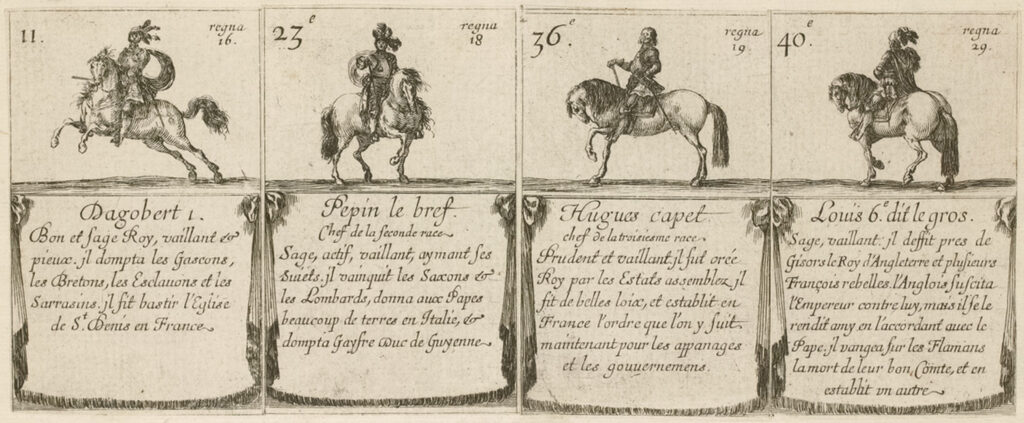 11.
regna
16.
Dagobert 1.
Bon et sage Roy, vaillant &
pieux. jl dompta les Gascons,
les Bretons, les Esclauons et les
Sarrasins. jl fit bastir l'Eglise
de S.t Denis en France
23e
regna
18
Pepin le bref.
Chef de la seconde race
Sage, actif, vaillant, aymant ses
suiets. jl vainquit les Saxons &
les Lombards, donna aux Papes
beaucoup de terres en Italie, &
dompta Gayfre Duc de Guyenne
36.e
regna
19.
Hugues capet.
chef de la troisiesme race
Prudent et vaillant. jl fut créé
Roy par les Estats assemblez, jl
fit de belles loix, et establit en
France l'ordre que l'on y suit
maintenant pour les appanages
et les gouuernemens.
40.e
regna
29.
Louis 6.e dit le gros.
Sage, vaillant. jl deffit pres de
Gisors le Roy d'Angleterre et plusieurs
François rebelles. l'Anglois suscita
l'Empereur contre luy, mais il se le
rendit amy en l'accordant auec le
Pape. jl vangea sur les Flamans
la mort de leur bon Comte, et en
establit vn autre